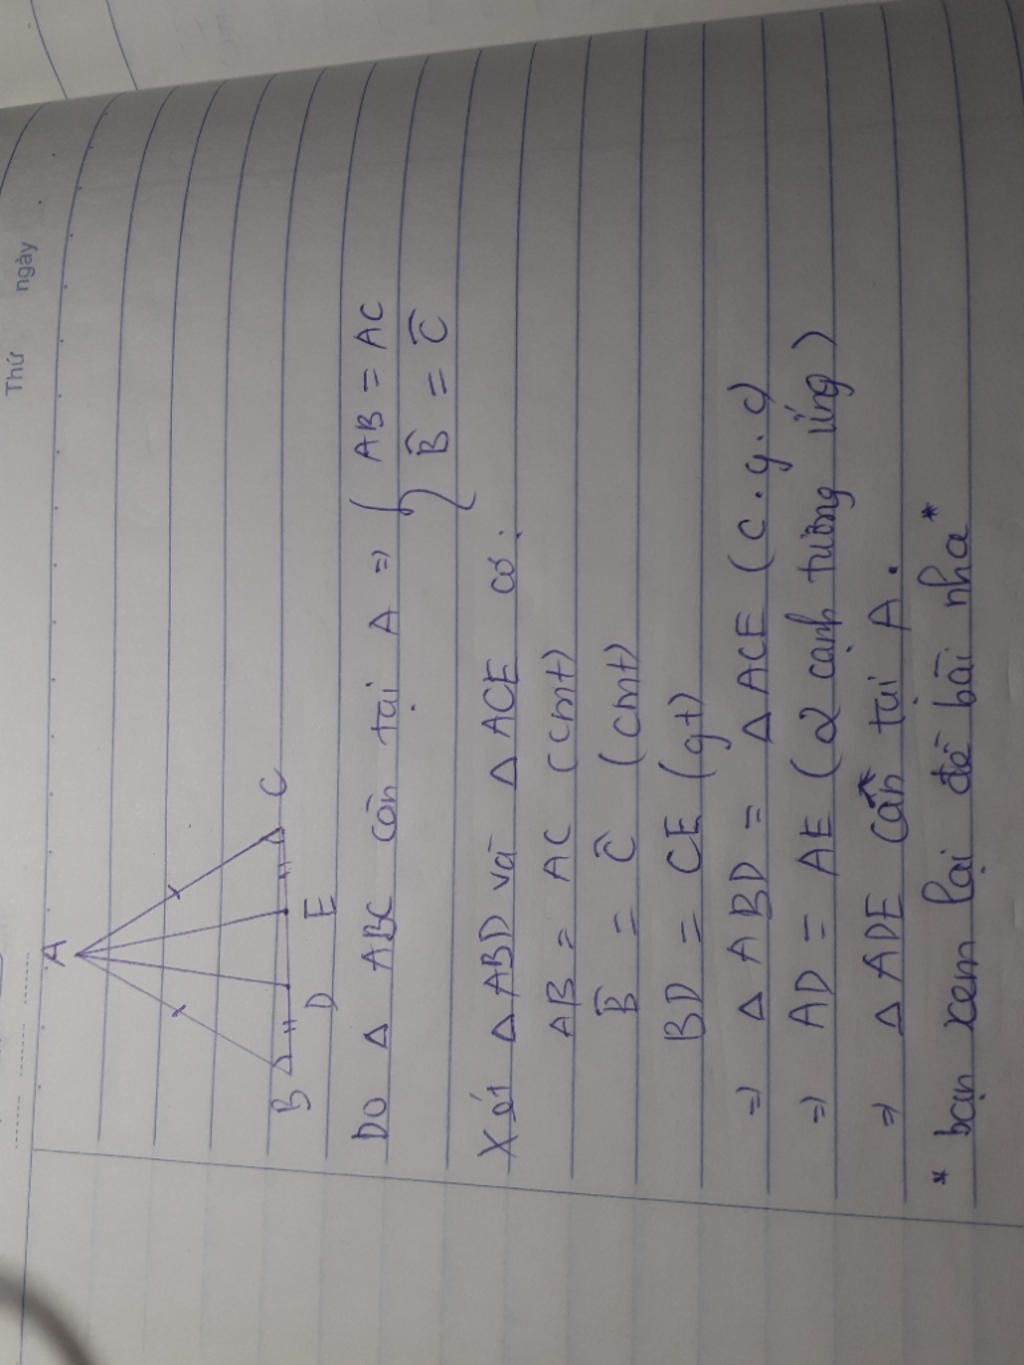 Thứ
ngày
A
B
D
E
C
Do Δ ABC cân tại A => { AB = AC
B̂ = Ĉ
Xét Δ ABD và Δ ACE có:
AB = AC (cmt)
B̂ = Ĉ (cmt)
BD = CE (gt)
=> Δ ABD = Δ ACE (c.g.c)
=> AD = AE (2 cạnh tương ứng)
=> Δ ADE cân tại A.
* bạn xem lại đề bài nha *